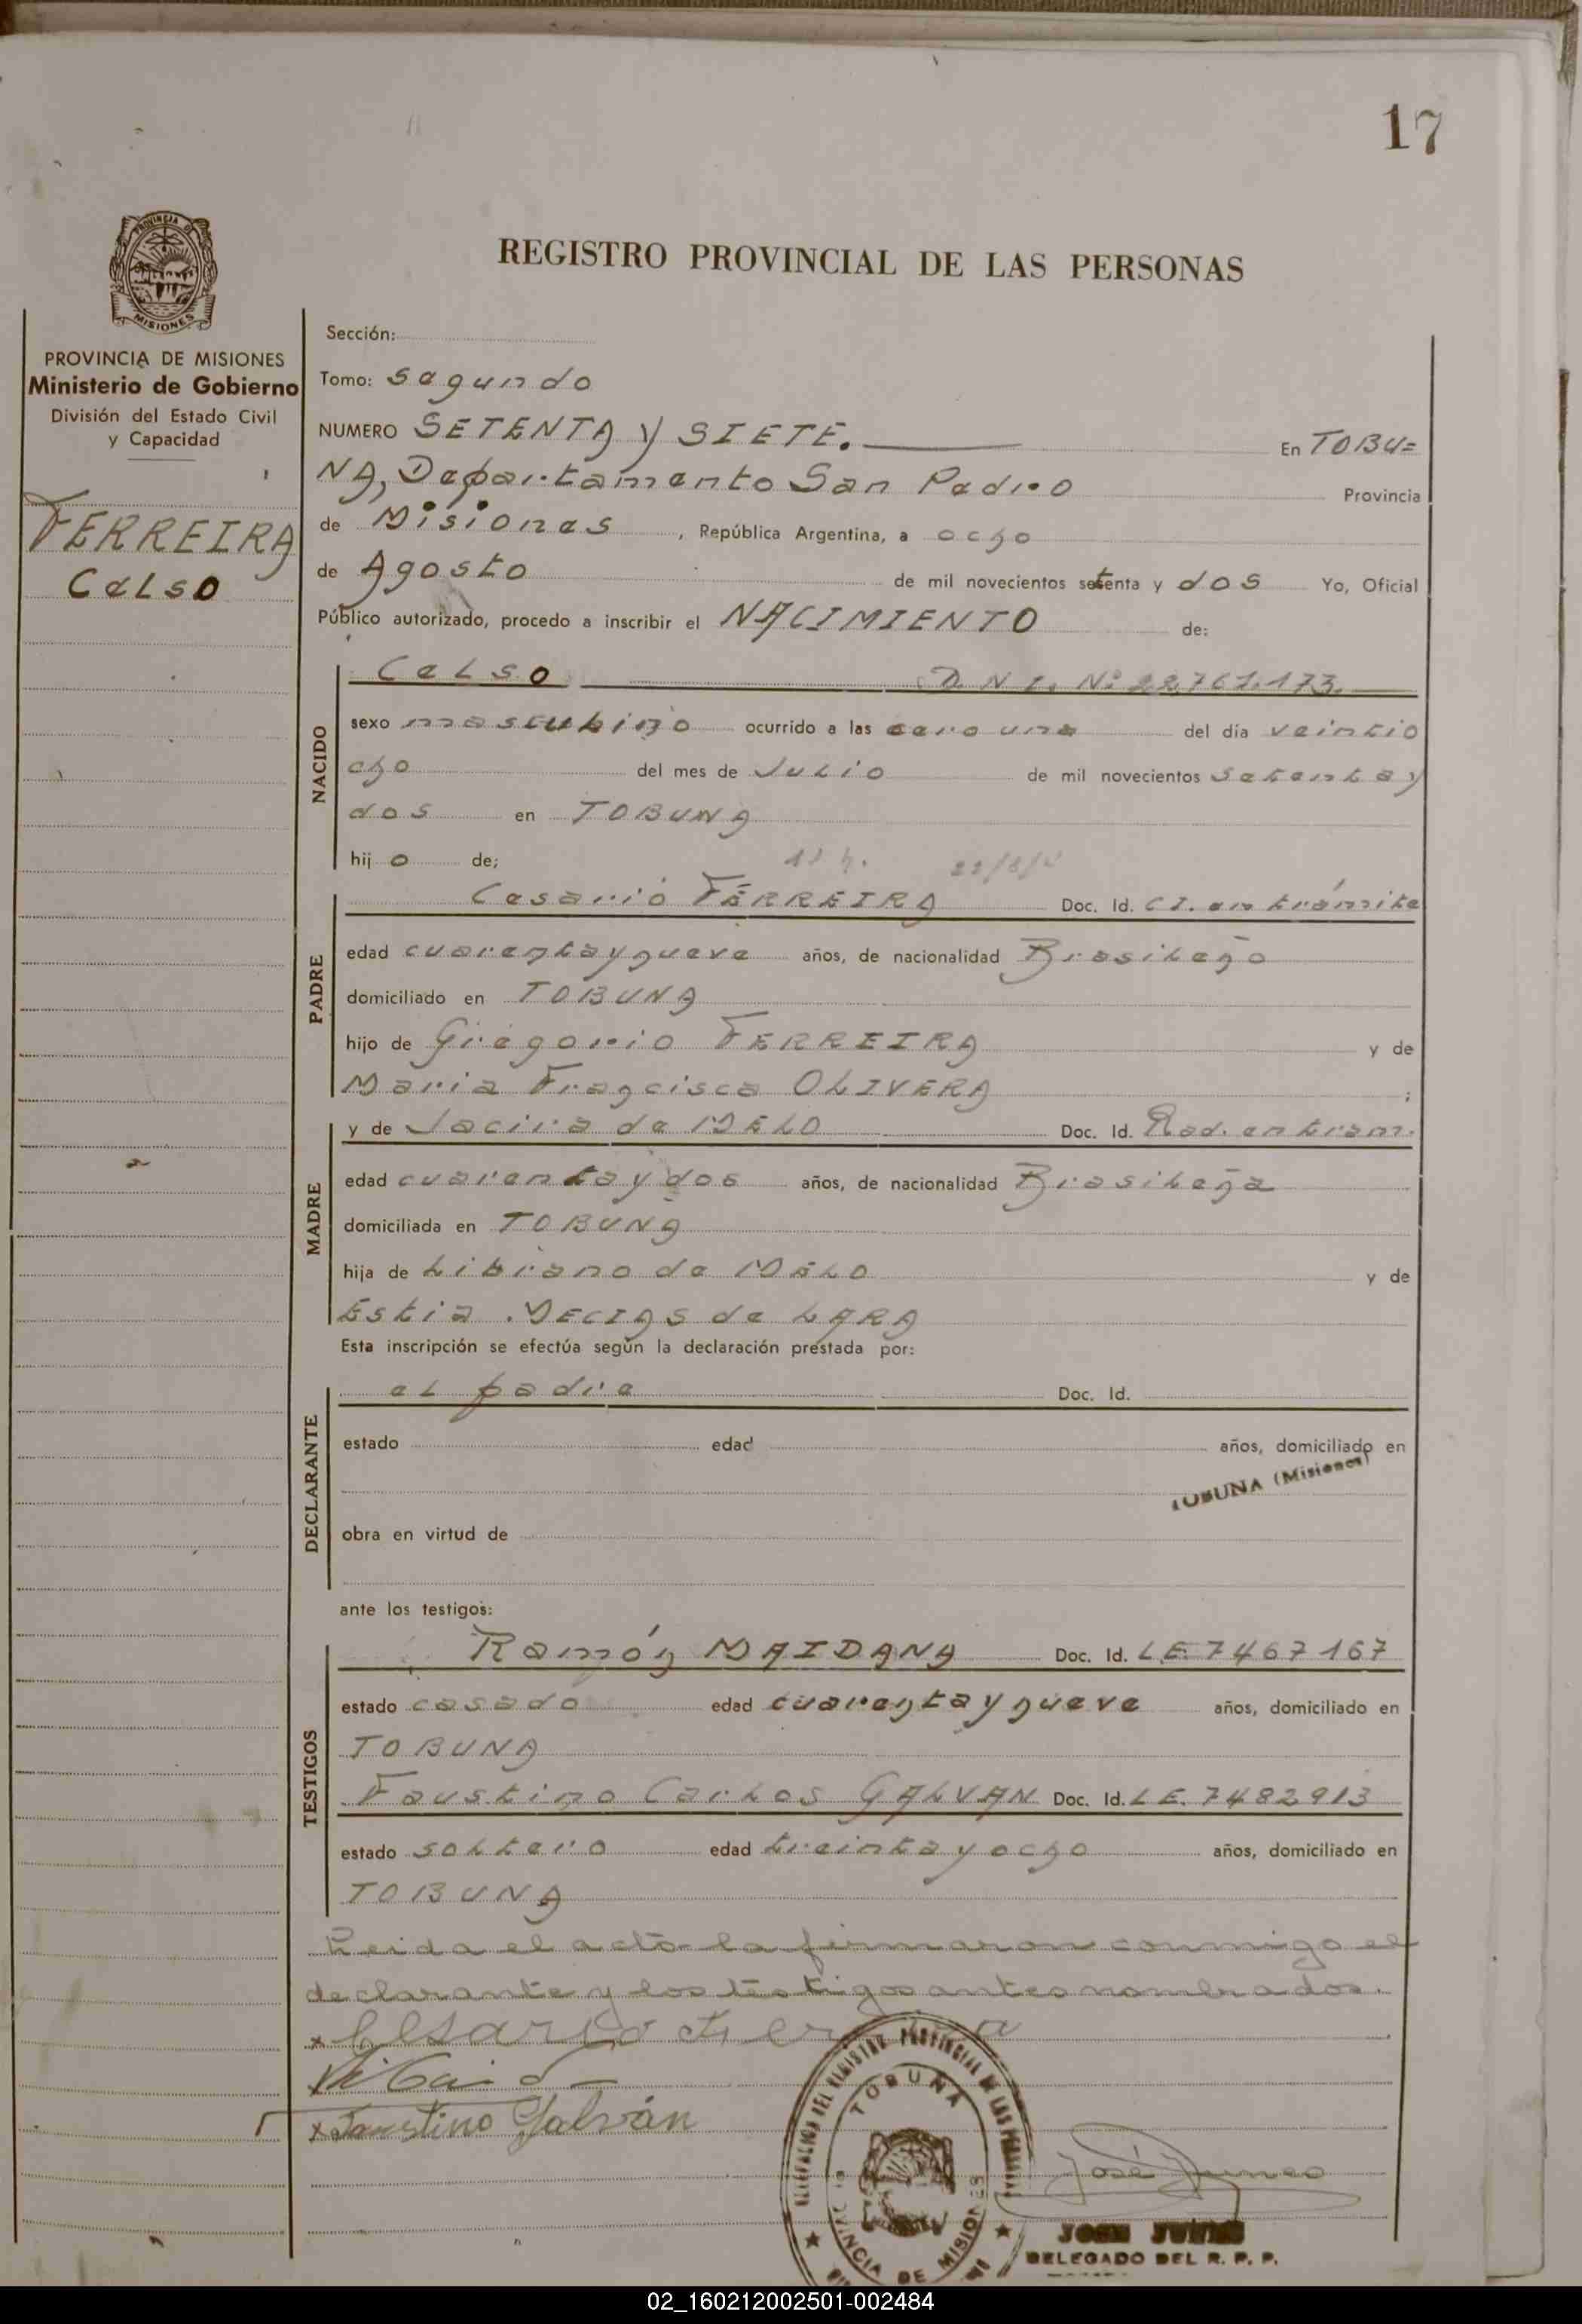 17
PROVINCIA DE MISIONES
Ministerio de Gobierno
División del Estado Civil
y Capacidad
FERREIRA
Celso
REGISTRO PROVINCIAL DE LAS PERSONAS
Sección:
Tomo: segundo
NUMERO SETENTA y SIETE. En TOBU=
NA, Departamento San Pedro Provincia
de Misiones , República Argentina, a ocho
de Agosto de mil novecientos setenta y dos Yo, Oficial
Público autorizado, procedo a inscribir el NACIMIENTO de:
NACIDO
Celso D.N.I. Nº 22.761.173.
sexo masculino ocurrido a las cero una del día veintio
cho del mes de Julio de mil novecientos setenta y
dos en TOBUNA
hijo de;
PADRE
Cesario FERREIRA Doc. Id. CI. en trámite
edad cuarenta y nueve años, de nacionalidad Brasileño
domiciliado en TOBUNA
hijo de Gregorio FERREIRA y de
Maria Francisca OLIVERA ;
MADRE
y de Jacira de MELO Doc. Id. Rad. en tram.
edad cuarenta y dos años, de nacionalidad Brasileña
domiciliada en TOBUNA
hija de Libiano de MELO y de
Estia MECIAS de LARA
Esta inscripción se efectúa según la declaración prestada por:
DECLARANTE
el padre Doc. Id.
estado edad años, domiciliado en
TOBUNA (Misiones)
obra en virtud de
ante los testigos:
TESTIGOS
Ramón MAIDANA Doc. Id. L.E. 7467167
estado casado edad cuarenta y nueve años, domiciliado en
TOBUNA
Faustino Carlos GALVAN Doc. Id. L.E. 7482913
estado soltero edad treinta y ocho años, domiciliado en
TOBUNA
Leida el acta la firmaron conmigo el
declarante y los testigos antes nombrados.
x Cesario
x Faustino Galván
DELEGACION DEL REGISTRO PROVINCIAL DE LAS PERSONAS
TOBUNA
PROVINCIA DE MISIONES
José
DELEGADO DEL R. P. P.
02_160212002501-002484